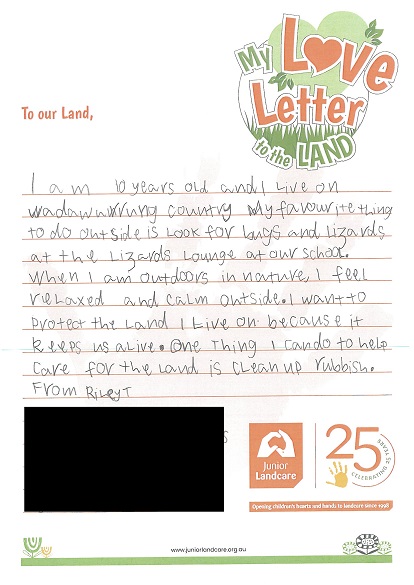 My Love
Letter
to the LAND
To our Land,
I am 10 years old and I Live on
wadawurrung country My favourite thing
to do outside is Look for bugs and Lizards
at the Lizards Lounge at our school.
When I am outdoors in nature, I feel
relaxed and calm outside. I want to
protect the Land I Live on because it
keeps us alive. One thing I can do to help
care for the land is clean up rubbish.
From Riley T
s
Junior
Landcare
25
CELEBRATING 25 YEARS
Opening children's hearts and hands to landcare since 1998
www.juniorlandcare.org.au